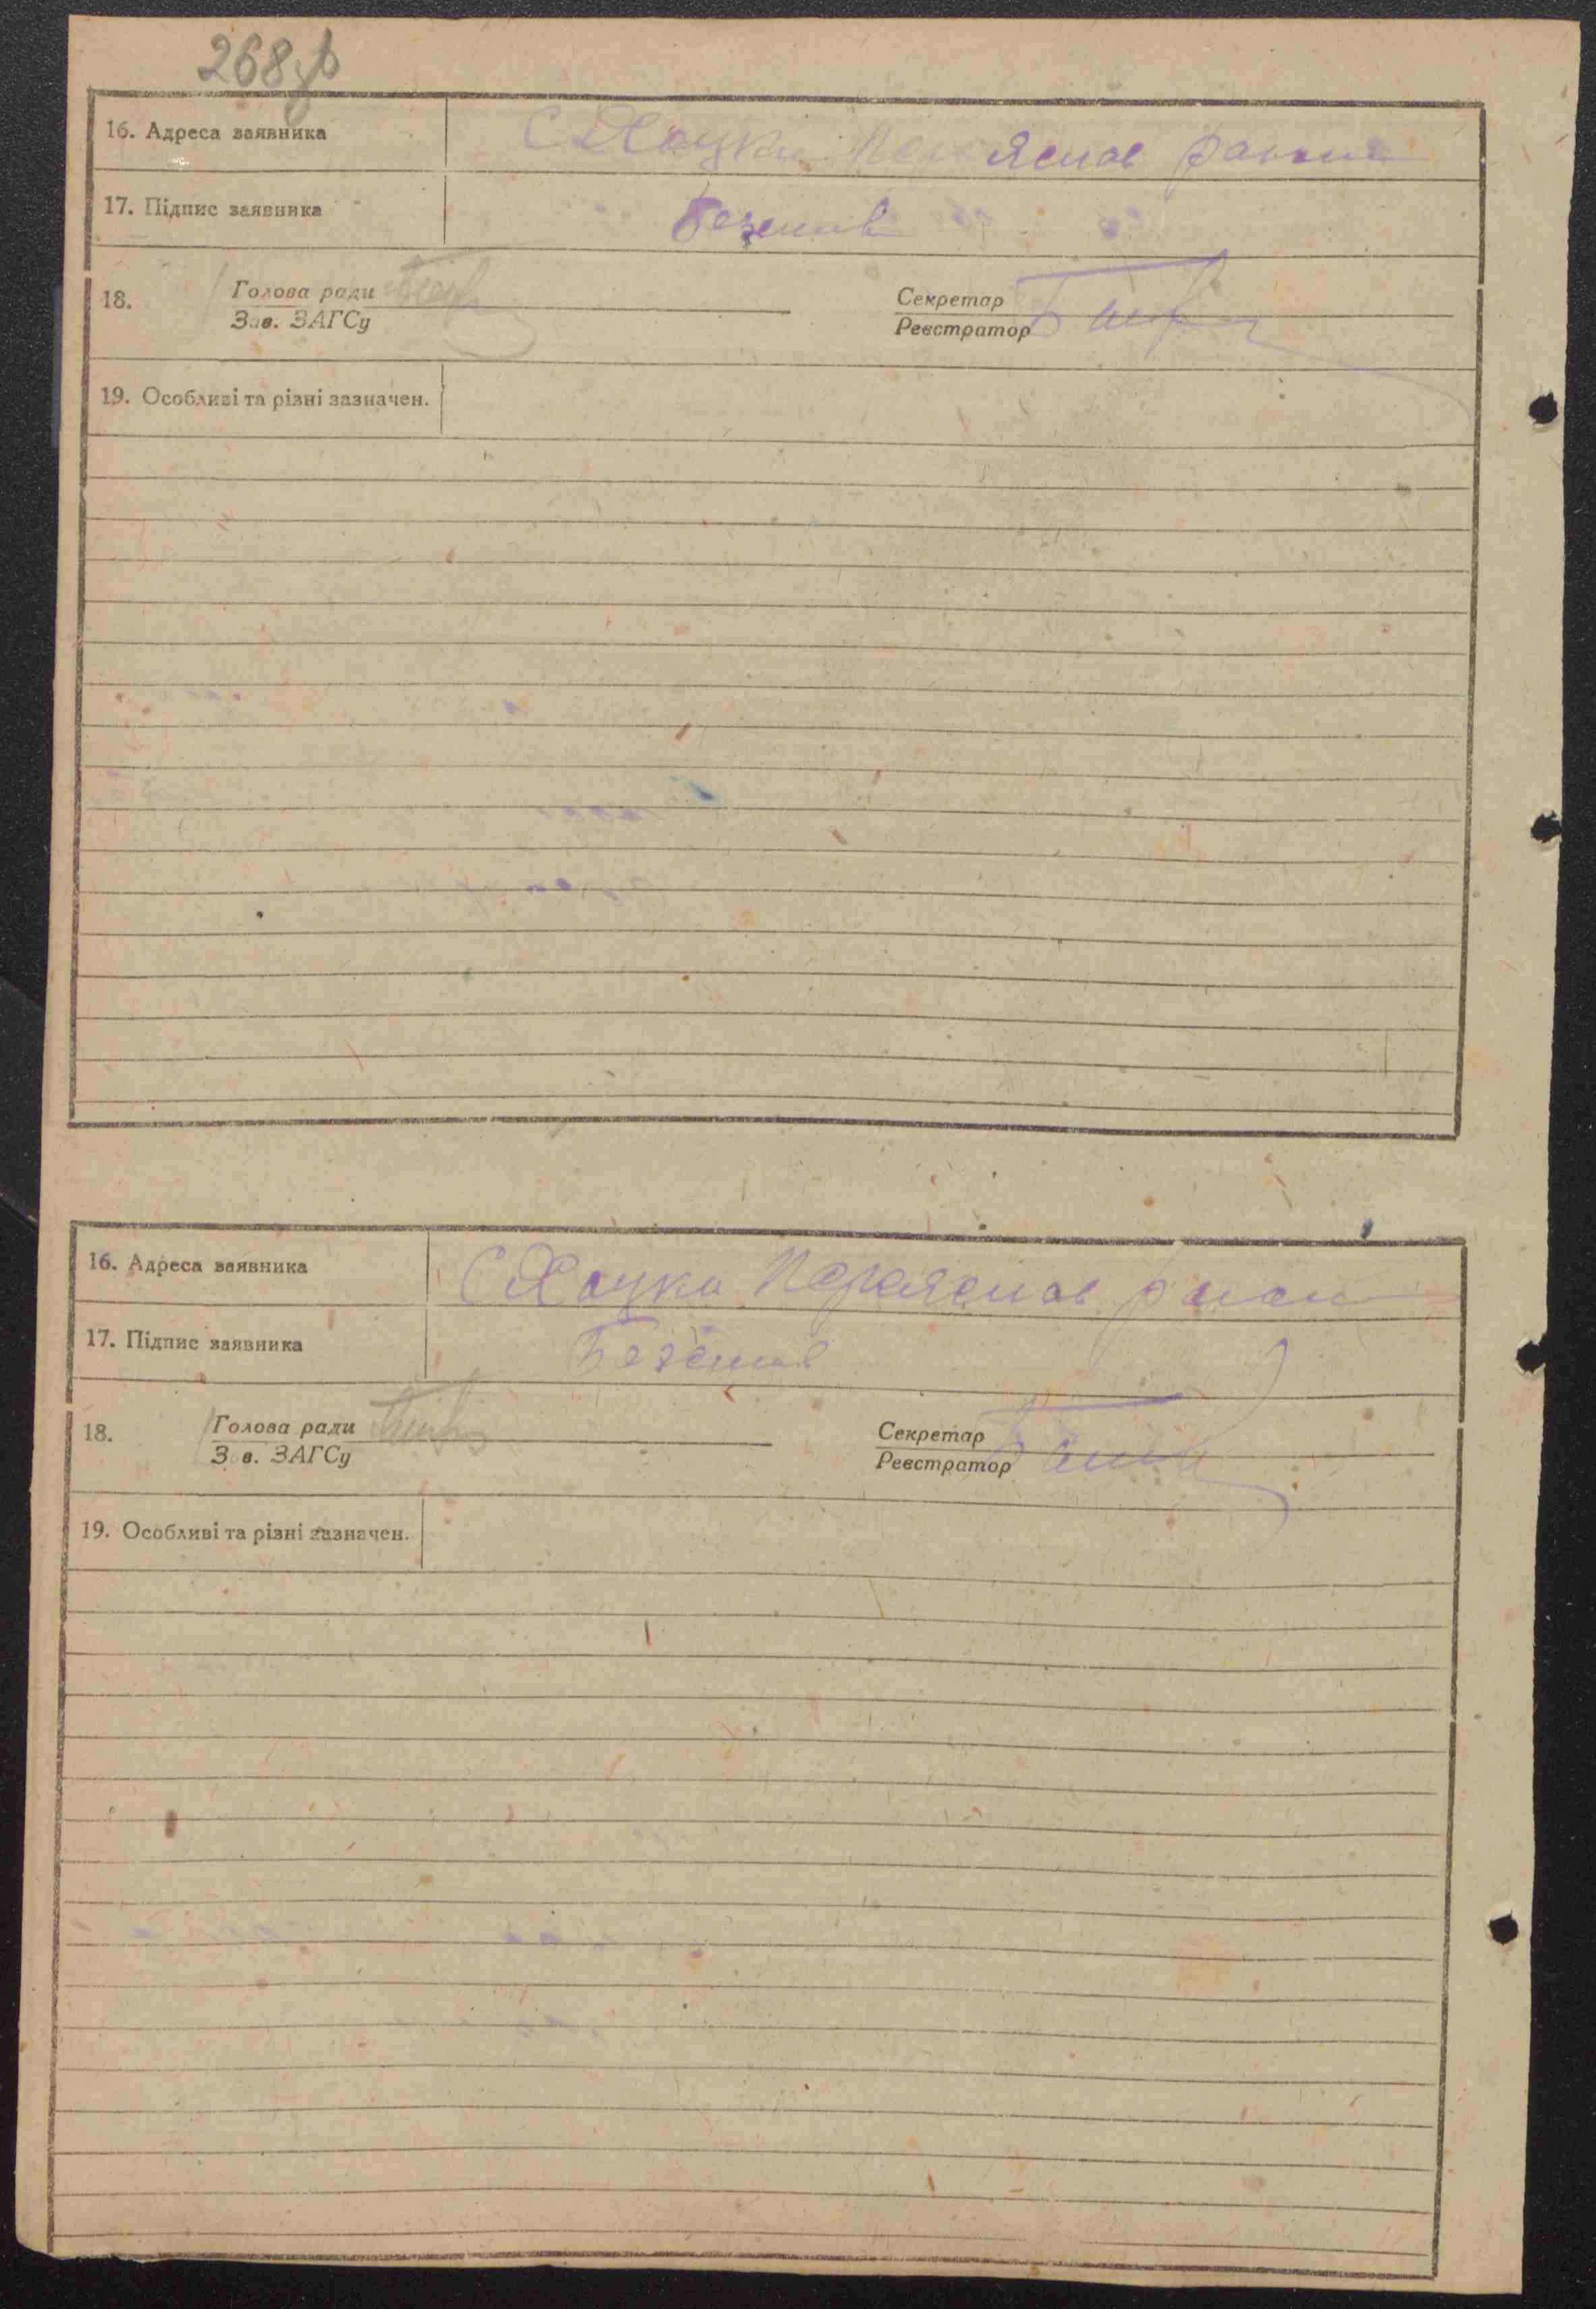 268
16. Адреса заявника С Хоцки Переяслав район
17. Підпис заявника
18. Голова ради Секретар
Зав. ЗАГСу Реєстратор
19. Особливі та різні зазначен.
16. Адреса заявника С Хоцки Переяслав район
17. Підпис заявника
18. Голова ради Секретар
Зав. ЗАГСу Реєстратор
19. Особливі та різні зазначен.